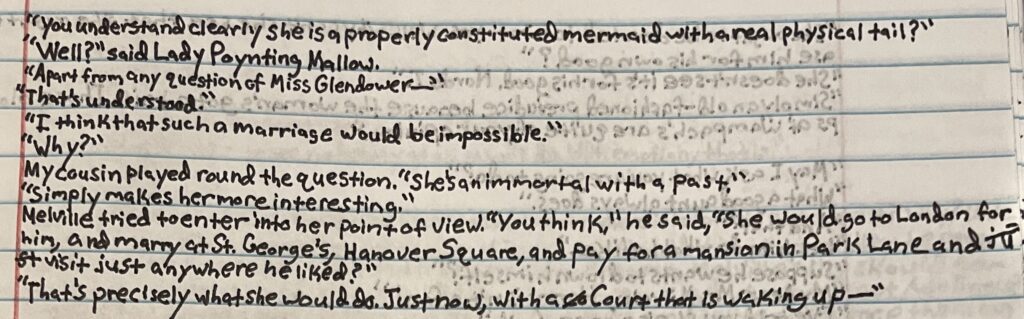 "You understand clearly she is a properly constituted mermaid with a real physical tail?"
"Well?" said Lady Poynting Mallow.
"Apart from any question of Miss Glendower—"
"That's understood."
"I think that such a marriage would be impossible."
"Why?"
My cousin played round the question. "She's an immortal with a past."
"Simply makes her more interesting."
Melville tried to enter into her point of view. "You think," he said, "she would go to London for
him, and marry at St. George's, Hanover Square, and pay for a mansion in Park Lane and ju
st visit just anywhere he liked?"
"That's precisely what she would do. Just now, with a Court that is waking up—"